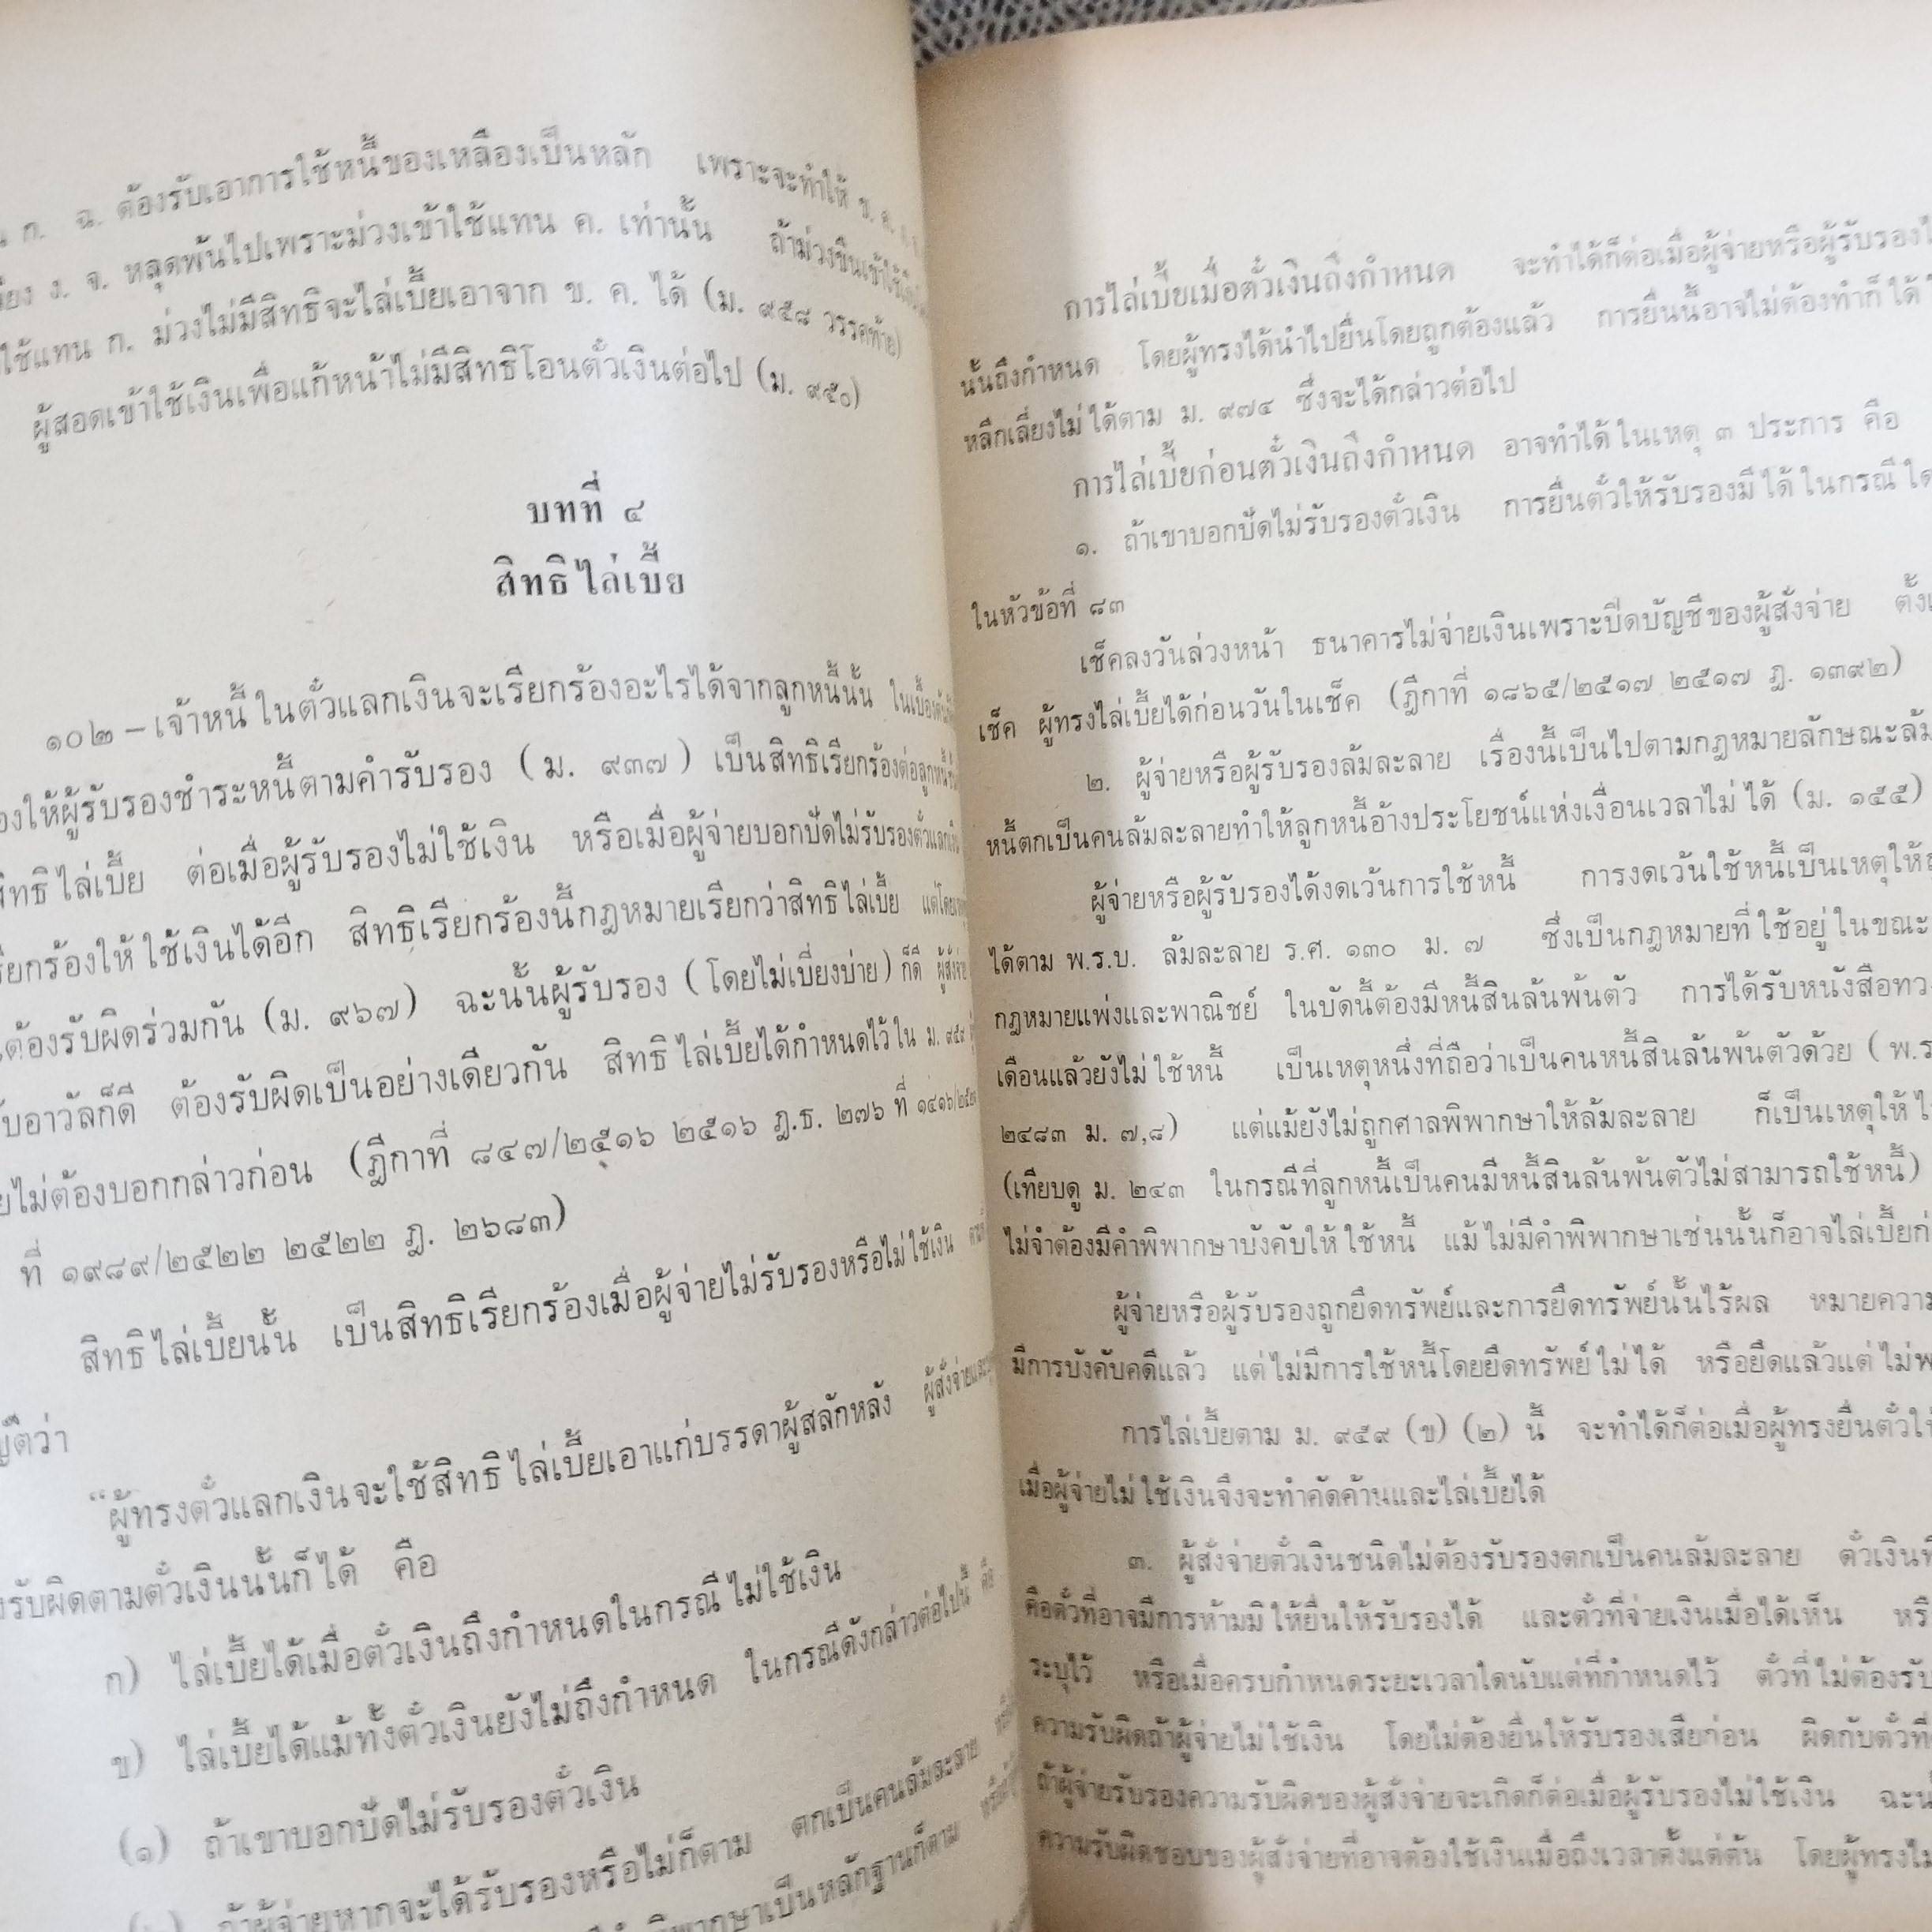 ก. ฉ. ต้องรับเอาการใช้หนี้ของเหลืองเป็นหลัก เพราะจะทำให้ ข. ค.
ง. จ. หลุดพ้นไปเพราะม่วงเข้าใช้แทน ค. เท่านั้น ถ้าม่วงขืนเข้าใช้เงิน
ใช้แทน ก. ม่วงไม่มีสิทธิจะไล่เบี้ยเอาจาก ข. ค. ได้ (ม. ๙๕๘ วรรคท้าย)
ผู้สอดเข้าใช้เงินเพื่อแก้หน้าไม่มีสิทธิโอนตั๋วเงินต่อไป (ม. ๙๕๐)
บทที่ ๔
สิทธิไล่เบี้ย
๑๐๒ – เจ้าหนี้ในตั๋วแลกเงินจะเรียกร้องอะไรได้จากลูกหนี้นั้น
ให้ผู้รับรองชำระหนี้ตามคำรับรอง (ม. ๙๓๗) เป็นสิทธิเรียกร้องต่อลูกหนี้
สิทธิไล่เบี้ย ต่อเมื่อผู้รับรองไม่ใช้เงิน หรือเมื่อผู้จ่ายบอกปัดไม่รับรองตั๋วแลกเงิน
เรียกร้องให้ใช้เงินได้อีก สิทธิเรียกร้องนี้กฎหมายเรียกว่าสิทธิไล่เบี้ย
ต้องรับผิดร่วมกัน (ม. ๙๖๗) ฉะนั้นผู้รับรอง (โดยไม่เบี่ยงบ่าย) ก็ดี
รับอาวัลก็ดี ต้องรับผิดเป็นอย่างเดียวกัน สิทธิไล่เบี้ยได้กำหนดไว้ใน ม. ๙๕๙
ไม่ต้องบอกกล่าวก่อน (ฎีกาที่ ๘๔๗/๒๕๑๖ ๒๕๑๖ ฎ.ธ. ๒๗๖ ที่
ที่ ๑๙๘๙/๒๕๒๒ ๒๕๒๒ ฎ. ๒๖๘๓)
สิทธิไล่เบี้ยนั้น เป็นสิทธิเรียกร้องเมื่อผู้จ่ายไม่รับรองหรือไม่ใช้เงิน
“ผู้ทรงตั๋วแลกเงินจะใช้สิทธิไล่เบี้ยเอาแก่บรรดาผู้สลักหลัง ผู้สั่งจ่าย
รับผิดตามตั๋วเงินนั้นก็ได้ คือ
ก) ไล่เบี้ยได้เมื่อตั๋วเงินถึงกำหนดในกรณีไม่ใช้เงิน
ข) ไล่เบี้ยได้แม้ทั้งตั๋วเงินยังไม่ถึงกำหนด ในกรณีดังกล่าวต่อไปนี้ คือ
(๑) ถ้าเขาบอกปัดไม่รับรองตั๋วเงิน
ถ้าผู้จ่ายหากจะได้รับรองหรือไม่ก็ตาม ตกเป็นคนล้มละลาย
พิพากษาเป็นหลักฐานก็ตาม
การไล่เบี้ยเมื่อตั๋วเงินถึงกำหนด จะทำได้ก็ต่อเมื่อผู้จ่ายหรือผู้รับรอง
นั้นถึงกำหนด โดยผู้ทรงได้นำไปยื่นโดยถูกต้องแล้ว การยื่นนี้อาจไม่ต้องทำก็ได้
หลีกเลี่ยงไม่ได้ตาม ม. ๙๗๔ ซึ่งจะได้กล่าวต่อไป
การไล่เบี้ยก่อนตั๋วเงินถึงกำหนด อาจทำได้ในเหตุ ๓ ประการ คือ
๑. ถ้าเขาบอกปัดไม่รับรองตั๋วเงิน การยื่นตั๋วให้รับรองมีได้ในกรณีใด
ในหัวข้อที่ ๘๓
เช็คลงวันล่วงหน้า ธนาคารไม่จ่ายเงินเพราะปิดบัญชีของผู้สั่งจ่าย
เช็ค ผู้ทรงไล่เบี้ยได้ก่อนวันในเช็ค (ฎีกาที่ ๑๘๖๕/๒๕๑๗ ๒๕๑๗ ฎ. ๑๓๙๒)
๒. ผู้จ่ายหรือผู้รับรองล้มละลาย เรื่องนี้เป็นไปตามกฎหมายลักษณะล้ม
หนี้ตกเป็นคนล้มละลายทำให้ลูกหนี้อ้างประโยชน์แห่งเงื่อนเวลาไม่ได้ (ม. ๑๕๕)
ผู้จ่ายหรือผู้รับรองได้งดเว้นการใช้หนี้ การงดเว้นใช้หนี้เป็นเหตุให้
ได้ตาม พ.ร.บ. ล้มละลาย ร.ศ. ๑๓๐ ม. ๗ ซึ่งเป็นกฎหมายที่ใช้อยู่ในขณะ
กฎหมายแพ่งและพาณิชย์ ในบัดนี้ต้องมีหนี้สินล้นพ้นตัว การได้รับหนังสือทวง
เดือนแล้วยังไม่ใช้หนี้ เป็นเหตุหนึ่งที่ถือว่าเป็นคนหนี้สินล้นพ้นตัวด้วย (พ.ร
๒๔๘๓ ม. ๗,๘) แต่แม้ยังไม่ถูกศาลพิพากษาให้ล้มละลาย ก็เป็นเหตุให้
(เทียบดู ม. ๒๔๓ ในกรณีที่ลูกหนี้เป็นคนมีหนี้สินล้นพ้นตัวไม่สามารถใช้หนี้)
ไม่จำต้องมีคำพิพากษาบังคับให้ใช้หนี้ แม้ไม่มีคำพิพากษาเช่นนั้นก็อาจไล่เบี้ย
ผู้จ่ายหรือผู้รับรองถูกยึดทรัพย์และการยึดทรัพย์นั้นไร้ผล หมายความ
มีการบังคับคดีแล้ว แต่ไม่มีการใช้หนี้โดยยึดทรัพย์ไม่ได้ หรือยึดแล้วแต่ไม่
การไล่เบี้ยตาม ม. ๙๕๙ (ข) (๒) นี้ จะทำได้ก็ต่อเมื่อผู้ทรงยื่นตั๋ว
เมื่อผู้จ่ายไม่ใช้เงินจึงจะทำคัดค้านและไล่เบี้ยได้
๓. ผู้สั่งจ่ายตั๋วเงินชนิดไม่ต้องรับรองตกเป็นคนล้มละลาย ตั๋วเงิน
คือตั๋วที่อาจมีการห้ามมิให้ยื่นให้รับรองได้ และตั๋วที่จ่ายเงินเมื่อได้เห็น
ระบุไว้ หรือเมื่อครบกำหนดระยะเวลาใดนับแต่ที่กำหนดไว้ ตั๋วที่ไม่ต้องรับ
ความรับผิดถ้าผู้จ่ายไม่ใช้เงิน โดยไม่ต้องยื่นให้รับรองเสียก่อน ผิดกับตั๋วที่
ถ้าผู้จ่ายรับรองความรับผิดของผู้สั่งจ่ายจะเกิดก็ต่อเมื่อผู้รับรองไม่ใช้เงิน
ความรับผิดชอบของผู้สั่งจ่ายที่อาจต้องใช้เงินเมื่อถึงเวลาตั้งแต่ต้น โดยผู้ทรง